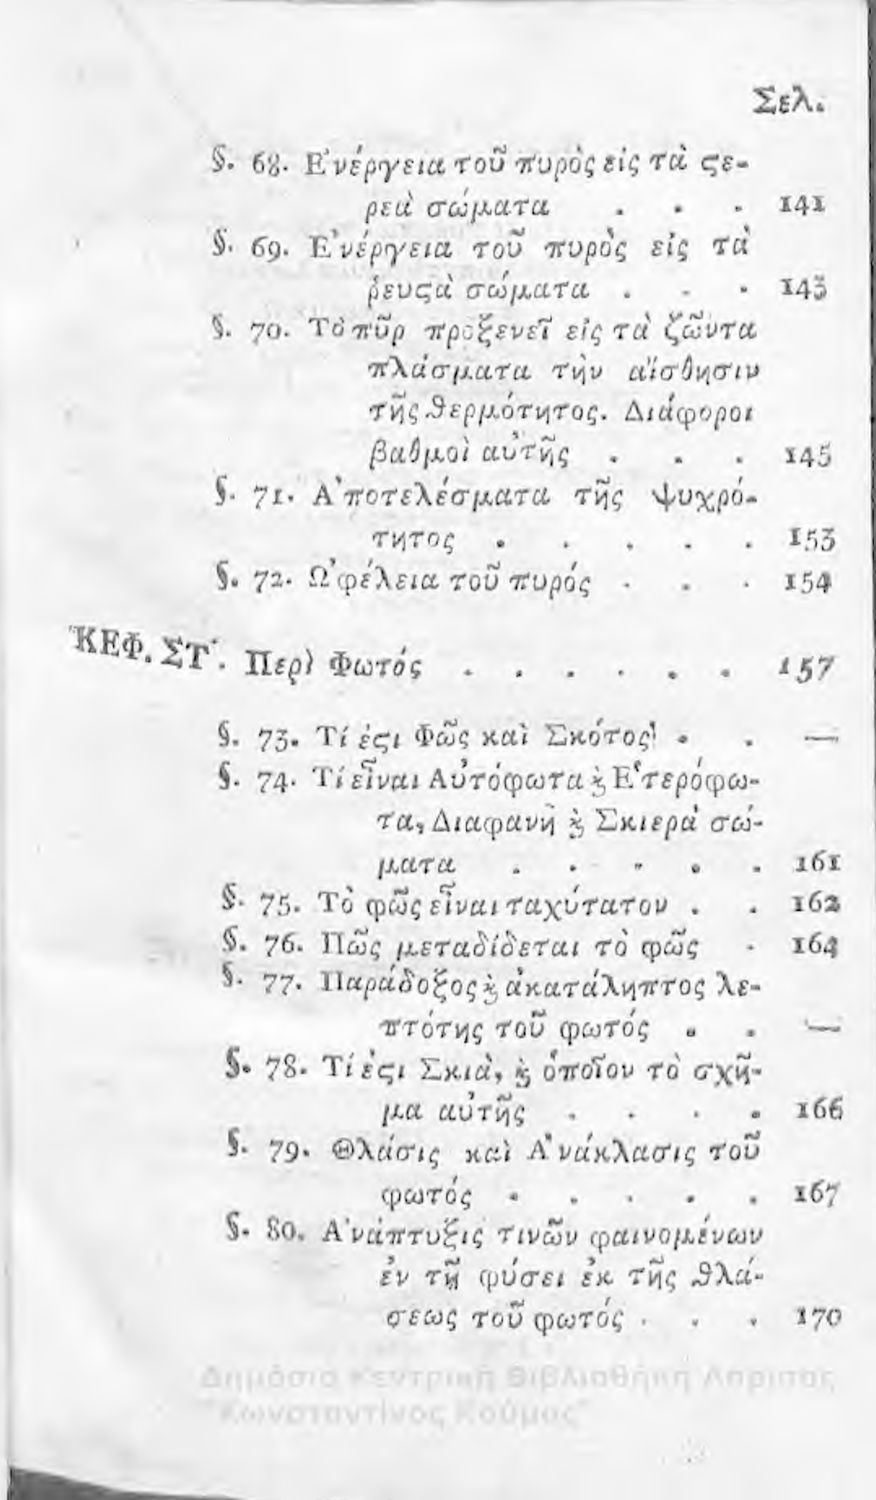 Σελ.
§. 68. Ἐνέργεια τοῦ πυρὸς εἰς τὰ ϛε-
ρεὰ σώματα . . . 141
§. 69. Ἐνέργεια τοῦ πυρὸς εἰς τὰ
ῥευϛὰ σώματα . . . 143
§. 70. Τὸ πῦρ προξενεῖ εἰς τὰ ζῶντα
πλάσματα τὴν αἴσθησιν
τῆς θερμότητος. Διάφοροι
βαθμοὶ αὐτῆς . . . 145
§. 71. Ἀποτελέσματα τῆς ψυχρό-
τητος . . . . . 153
§. 72. Ὠφέλεια τοῦ πυρός . . . 154
ΚΕΦ. ΣΤ΄. Περὶ Φωτός . . . . . . 157
§. 73. Τί ἐϛι Φῶς καὶ Σκότος . . —
§. 74. Τί εἶναι Αὐτόφωτα ϗ Ἑτερόφω-
τα, Διαφανῆ ϗ Σκιερὰ σώ-
ματα . . . . . 161
§. 75. Τὸ φῶς εἶναι ταχύτατον . . 162
§. 76. Πῶς μεταδίδεται τὸ φῶς . 164
§. 77. Παράδοξος ϗ ἀκατάληπτος λε-
πτότης τοῦ φωτός . . —
§. 78. Τί ἐϛι Σκιὰ, ϗ ὁποῖον τὸ σχῆ-
μα αὐτῆς . . . . 166
§. 79. Θλάσις καὶ Ἀνάκλασις τοῦ
φωτός . . . . . 167
§. 80. Ἀνάπτυξις τινῶν φαινομένων
ἐν τῇ φύσει ἐκ τῆς θλά-
σεως τοῦ φωτός . . . 170
Δημόσια Κεντρική Βιβλιοθήκη Λάρισας
"Κωνσταντίνος Κούμας"